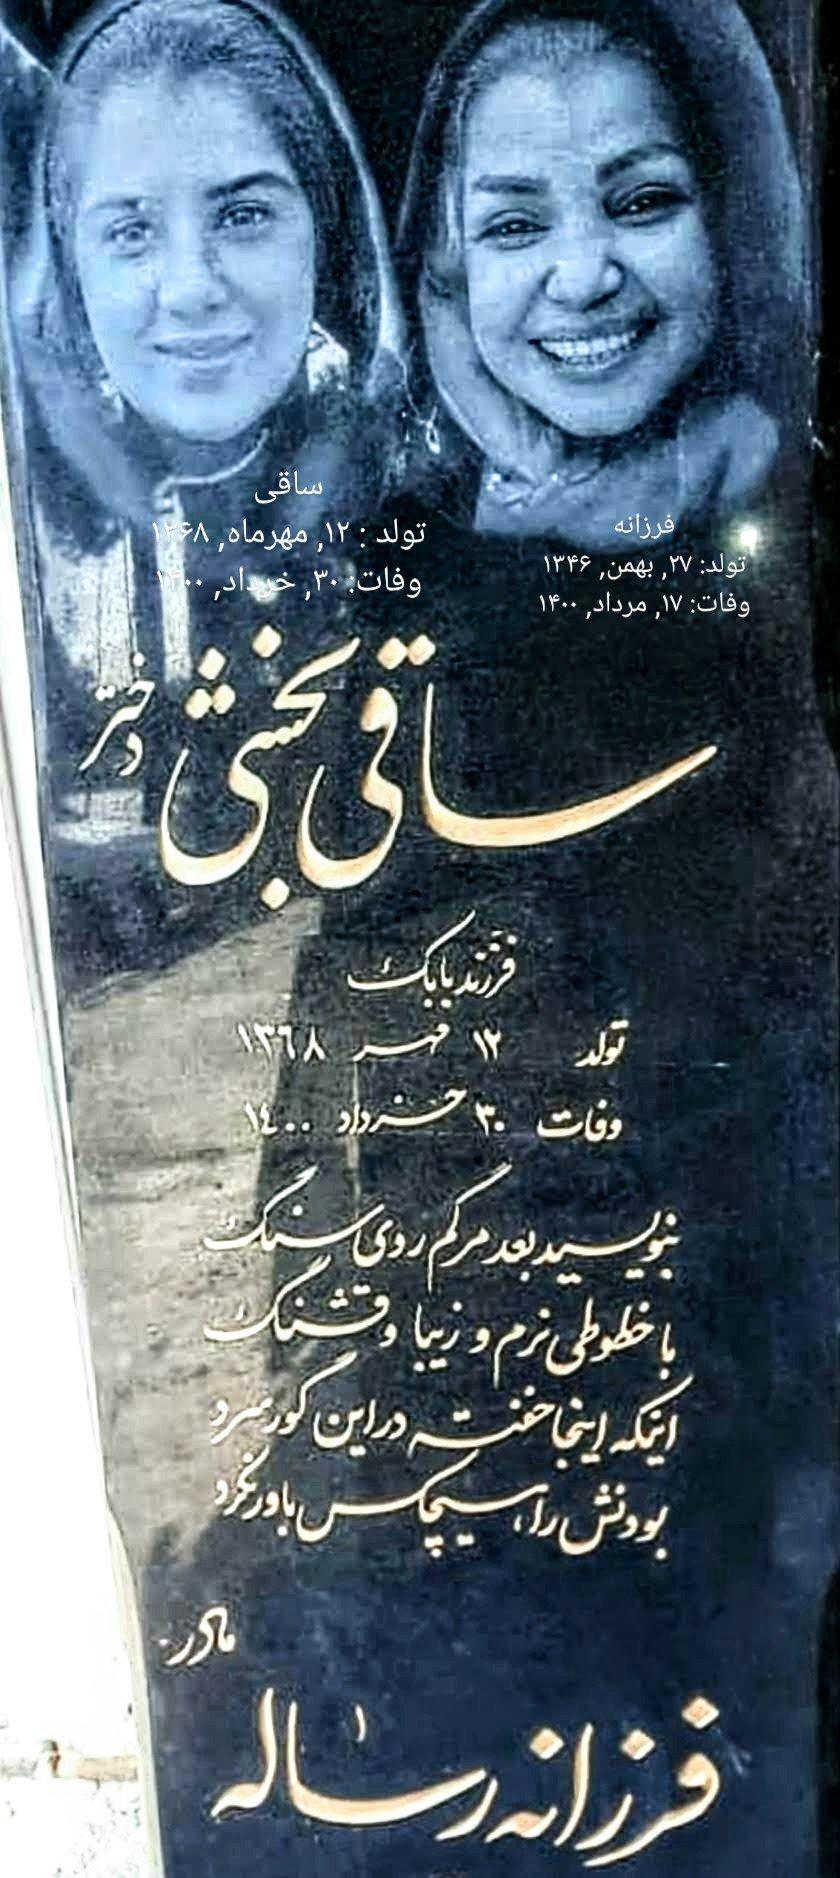 ساقی
تولد : ۱۲, مهرماه, ۱۳۶۸
وفات: ۳۰, خرداد, ۱۴۰۰
فرزانه
تولد: ۲۷, بهمن, ۱۳۴۶
وفات: ۱۷, مرداد, ۱۴۰۰
ساقی بخشی دختر
فرزند بابک
تولد ۱۲ مهر ۱۳٦۸
وفات ۳۰ خرداد ۱٤۰۰
بنویسید بعد مرگم روی سنگ
با خطوطی نرم و زیبا و قشنگ
اینکه اینجا خفته در این گور سرد
بودنش را هیچکس باور نکرد
مادر
فرزانه رساله